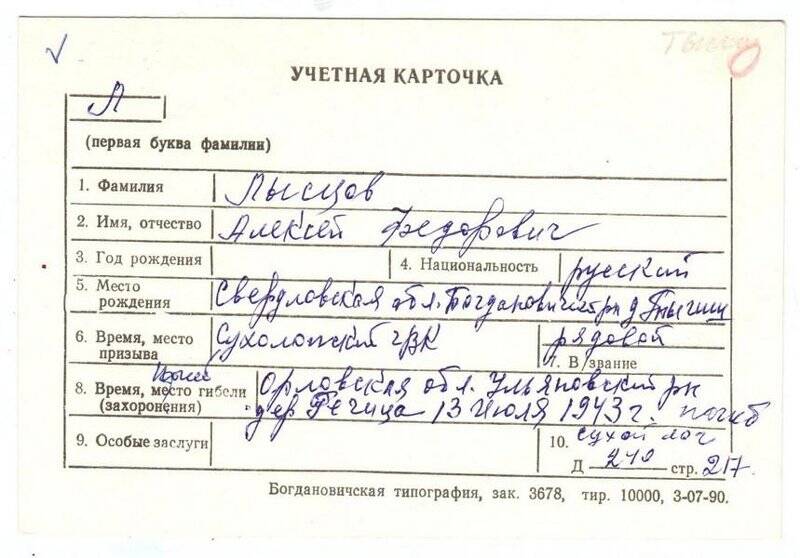 УЧЕТНАЯ КАРТОЧКА
Л
(первая буква фамилии)
1. Фамилия Лысцов
2. Имя, отчество Алексей Федорович
3. Год рождения 4. Национальность русский
5. Место рождения Свердловская обл. Богдановический рн д.
6. Время, место призыва Сухоложский ГВК рядовой
7. В/звание
8. Время, место гибели (захоронения) Орловская обл. Ульяновский рн
дер Речица 13 июля 1943 г. погиб
9. Особые заслуги 10. Сухой лог
Д 240 стр. 217.
Богдановичская типография, зак. 3678, тир. 10000, 3-07-90.